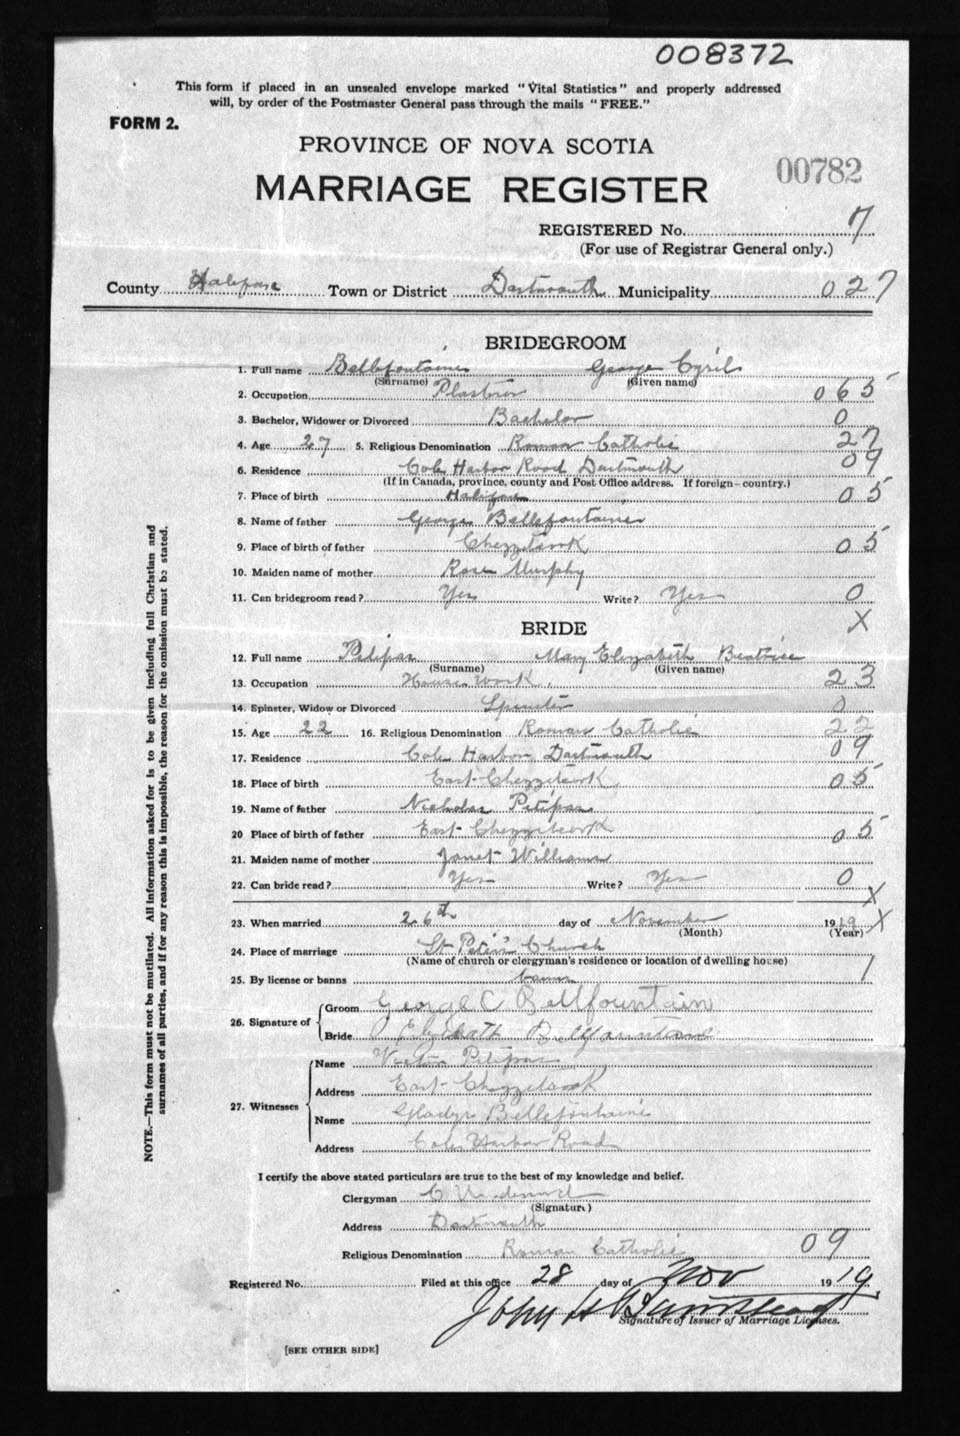 008372
This form if placed in an unsealed envelope marked "Vital Statistics" and properly addressed
will, by order of the Postmaster General pass through the mails "FREE."
FORM 2.
PROVINCE OF NOVA SCOTIA
00782
MARRIAGE REGISTER
REGISTERED No. 7
(For use of Registrar General only.)
County Halifax Town or District Dartmouth Municipality 027
BRIDEGROOM
1. Full name Bellefontaine George Cyril
(Surname) (Given name)
2. Occupation Plasterer 065
3. Bachelor, Widower or Divorced Bachelor 0
4. Age 27 5. Religious Denomination Roman Catholic 27
6. Residence Cole Harbor Road Dartmouth 09
(If in Canada, province, county and Post Office address. If foreign-country.)
7. Place of birth Halifax 05
8. Name of father George Bellefontaine
9. Place of birth of father Chezzetcook 05
10. Maiden name of mother Rose Murphy
11. Can bridegroom read? Yes Write? Yes 0
X
BRIDE
12. Full name Petipas Mary Elizabeth Beatrice
(Surname) (Given name)
13. Occupation House Work. 23
14. Spinster, Widow or Divorced Spinster 0
15. Age 22 16. Religious Denomination Roman Catholic 22
17. Residence Cole Harbor Dartmouth 09
18. Place of birth East-Chezzetcook 05
19. Name of father Nicholas Petipas
20 Place of birth of father East-Chezzetcook 05
21. Maiden name of mother Janet Williams
22. Can bride read? Yes Write? Yes 0
X
23. When married 26th day of November 1919 X
(Month) (Year)
24. Place of marriage St Peter's Church
(Name of church or clergyman's residence or location of dwelling house) 1
25. By license or banns banns
26. Signature of
Groom George C Bellfountain
Bride Elizabeth Bellfountain
27. Witnesses
Name Petipas
Address East-Chezzetcook
Name Gladys Bellefontaine
Address Cole Harbor Road
I certify the above stated particulars are true to the best of my knowledge and belief.
Clergyman C Underwood
(Signature)
Address Dartmouth
Religious Denomination Roman Catholic 09
Registered No. Filed at this office 28 day of Nov 1919
John H
Signature of Issuer of Marriage Licenses.
[SEE OTHER SIDE]
NOTE.—This form must not be mutilated. All information asked for is to be given including full Christian and
surnames of all parties, and if for any reason this is impossible, the reason for the omission must be stated.